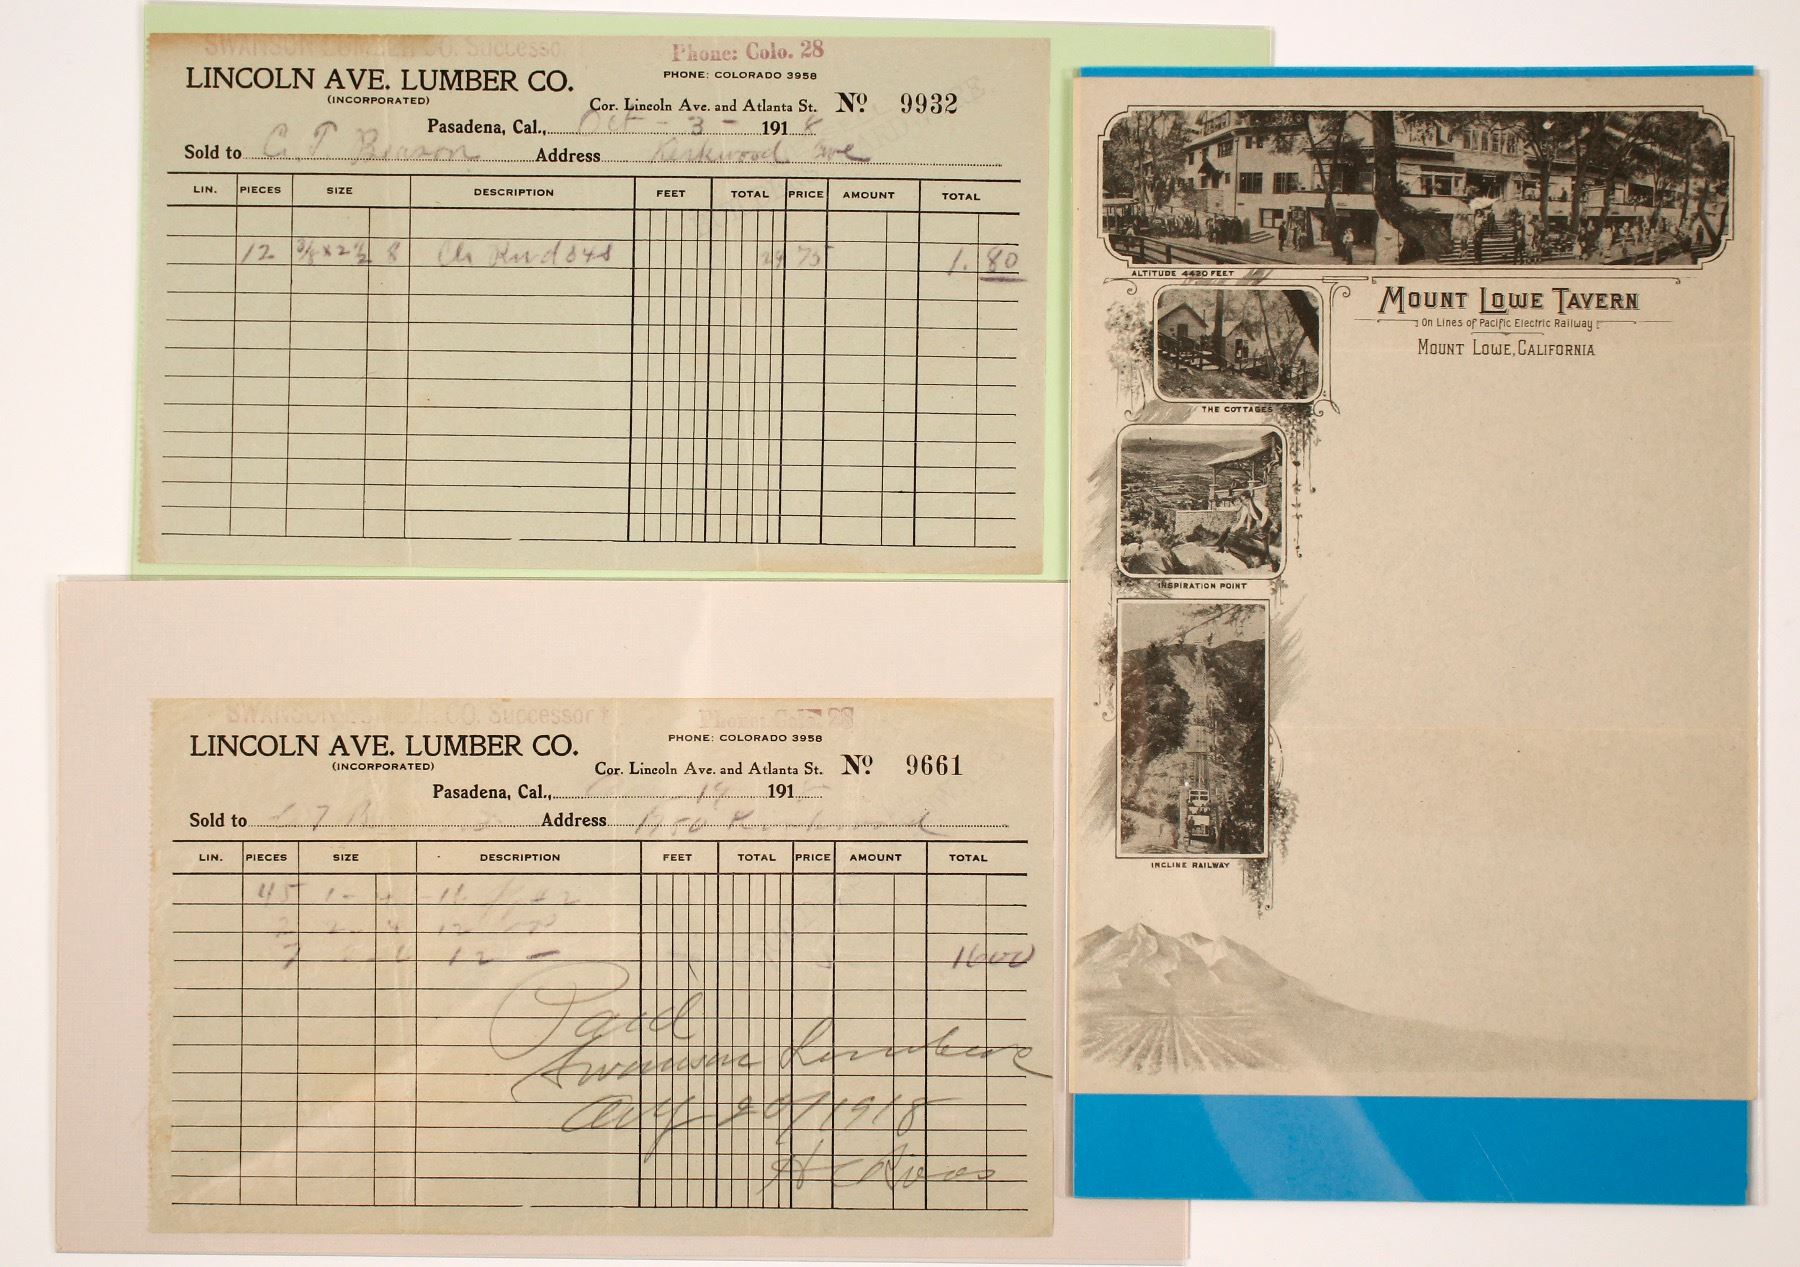 SWANSON LUMBER CO. Successo
Phone: Colo. 28
LINCOLN AVE. LUMBER CO.
(INCORPORATED)
PHONE: COLORADO 3958
Cor. Lincoln Ave. and Atlanta St. Nº 9932
Pasadena, Cal., Oct - 3 - 1918
Sold to C. T. Address Kirkwood Ave
LIN. PIECES SIZE DESCRIPTION FEET TOTAL PRICE AMOUNT TOTAL
12 8 75 1.80
SWANSON LUMBER CO. Successor
Phone: Colo. 28
LINCOLN AVE. LUMBER CO.
(INCORPORATED)
PHONE: COLORADO 3958
Cor. Lincoln Ave. and Atlanta St. Nº 9661
Pasadena, Cal., 19 191
Sold to Address
LIN. PIECES SIZE DESCRIPTION FEET TOTAL PRICE AMOUNT TOTAL
45 1
2 12
7 12 - 1600
Paid
Swanson Lumber Co
Aug 20/1918
ALTITUDE 4420 FEET
MOUNT LOWE TAVERN
On Lines of Pacific Electric Railway
MOUNT LOWE, CALIFORNIA
THE COTTAGES
INSPIRATION POINT
INCLINE RAILWAY